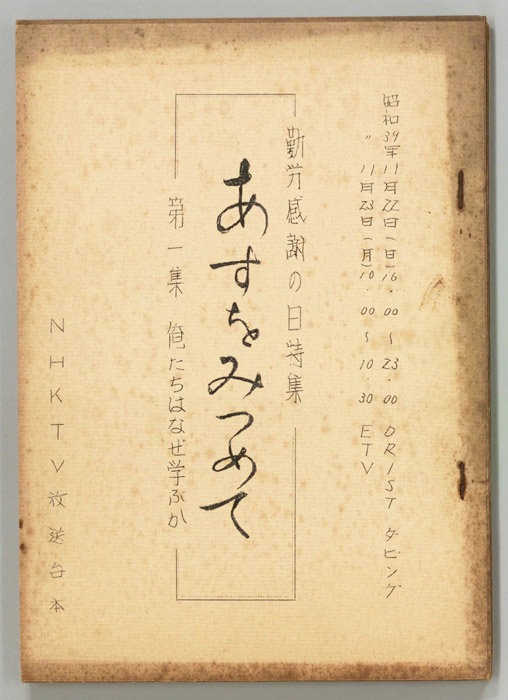 昭和39年11月22日(日)16.00〜23.00 DRIST ダビング
〃 11月23日(月)10.00〜10.30 ETV
勤労感謝の日特集
あすをみつめて
第一集 俺たちはなぜ学ぶか
NHKTV放送台本